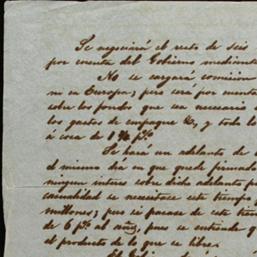 Se negociará el resto de seis
por cuenta del Gobierno mediante
No se cargará comision
ni en Europa; pero será por cuenta
sobre los fondos que sea necesario
los gastos de empaque &, y todo lo
á cosa de 1 % p%
Se hará un adelanto de
el mismo dia en que quede firmado
ningun interes sobre dicho adelanto p
casualidad se necesitase este tiempo p
millones; pero si pasase de este tiem
de 6 p% al año, pues se entiende q
el producto de lo que se libre.
El Gobierno